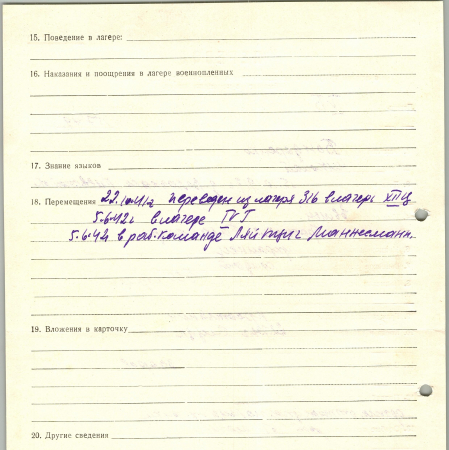 15. Поведение в лагере:
16. Наказания и поощрения в лагере военнопленных
17. Знание языков
18. Перемещения 22.10.41г переведен из лагеря 316 в лагерь XII
5.6.42г в лагере IV
5.6.42 в раб. команде Ляйпциг Маннесманн.
19. Вложения в карточку
20. Другие сведения